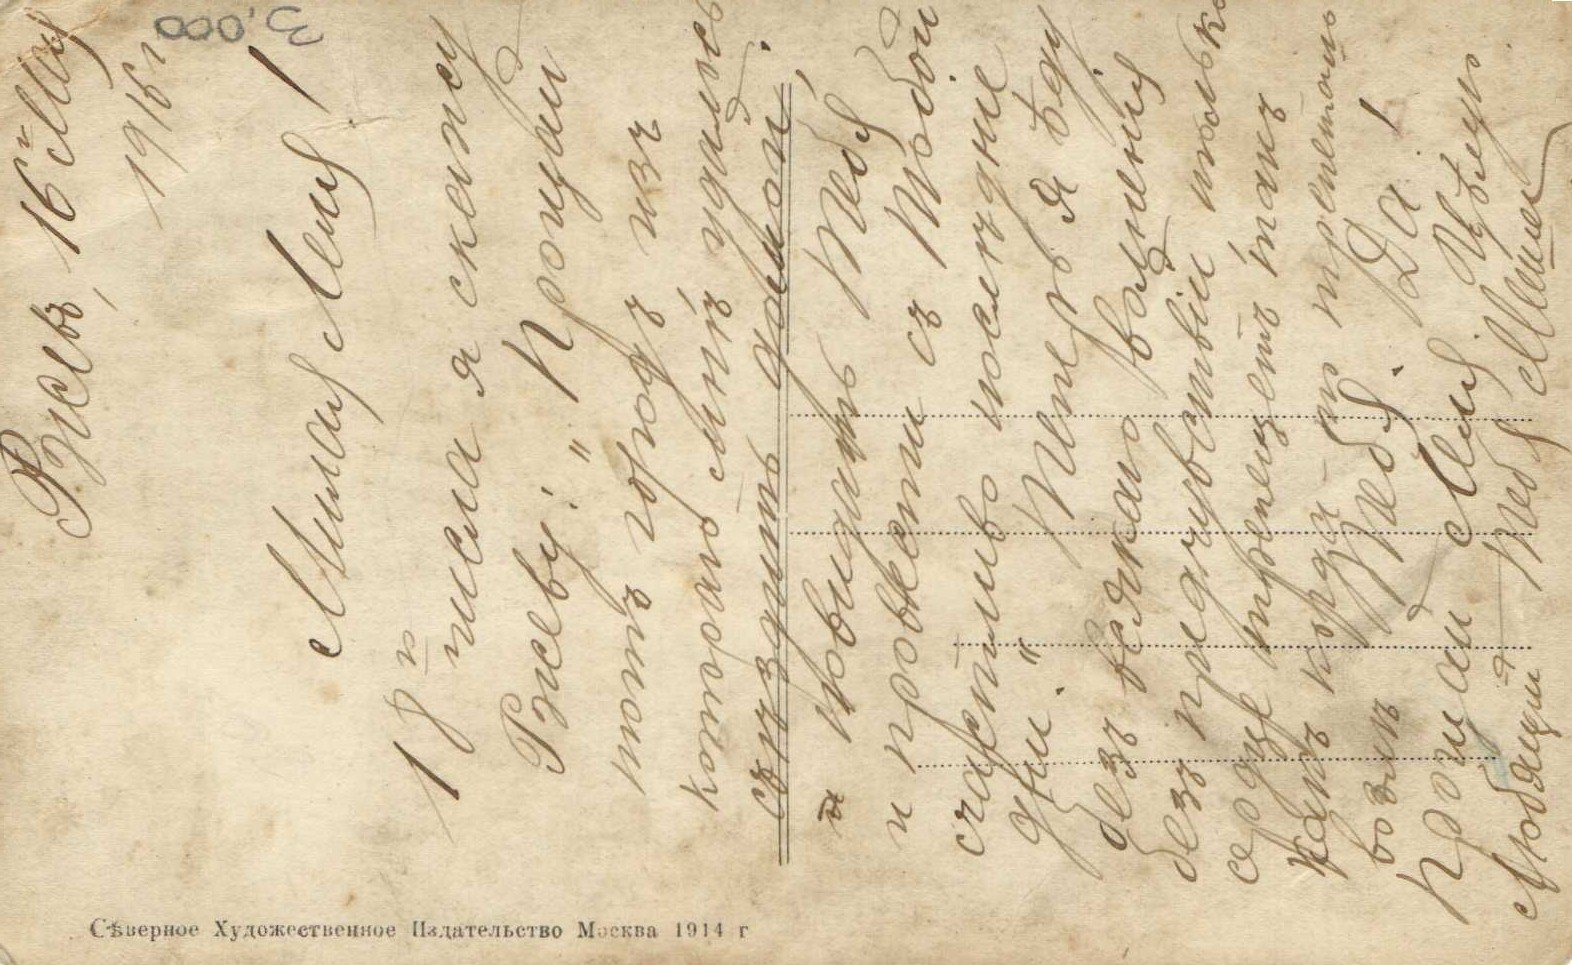 Ржевъ, 16й Мая
1915 г
Милая Леля!
18го числа я скажу
Ржеву: "Прощай
тотъ городъ изъ
которого мнѣ удалось
съѣздить домой,
и повидать Тебя
и провести съ Тобой
счастливо последние
дни." Теперь я ѣду
безъ всякаго волненія
безъ предчувствій только
сердце трепещетъ такъ
какъ когда-то трепетало
возлѣ Тебя. Да!
Прощай Леля. Цѣлую
Любящій Тебя Миша
Сѣверное Художественное Издательство Москва 1914 г
3,000